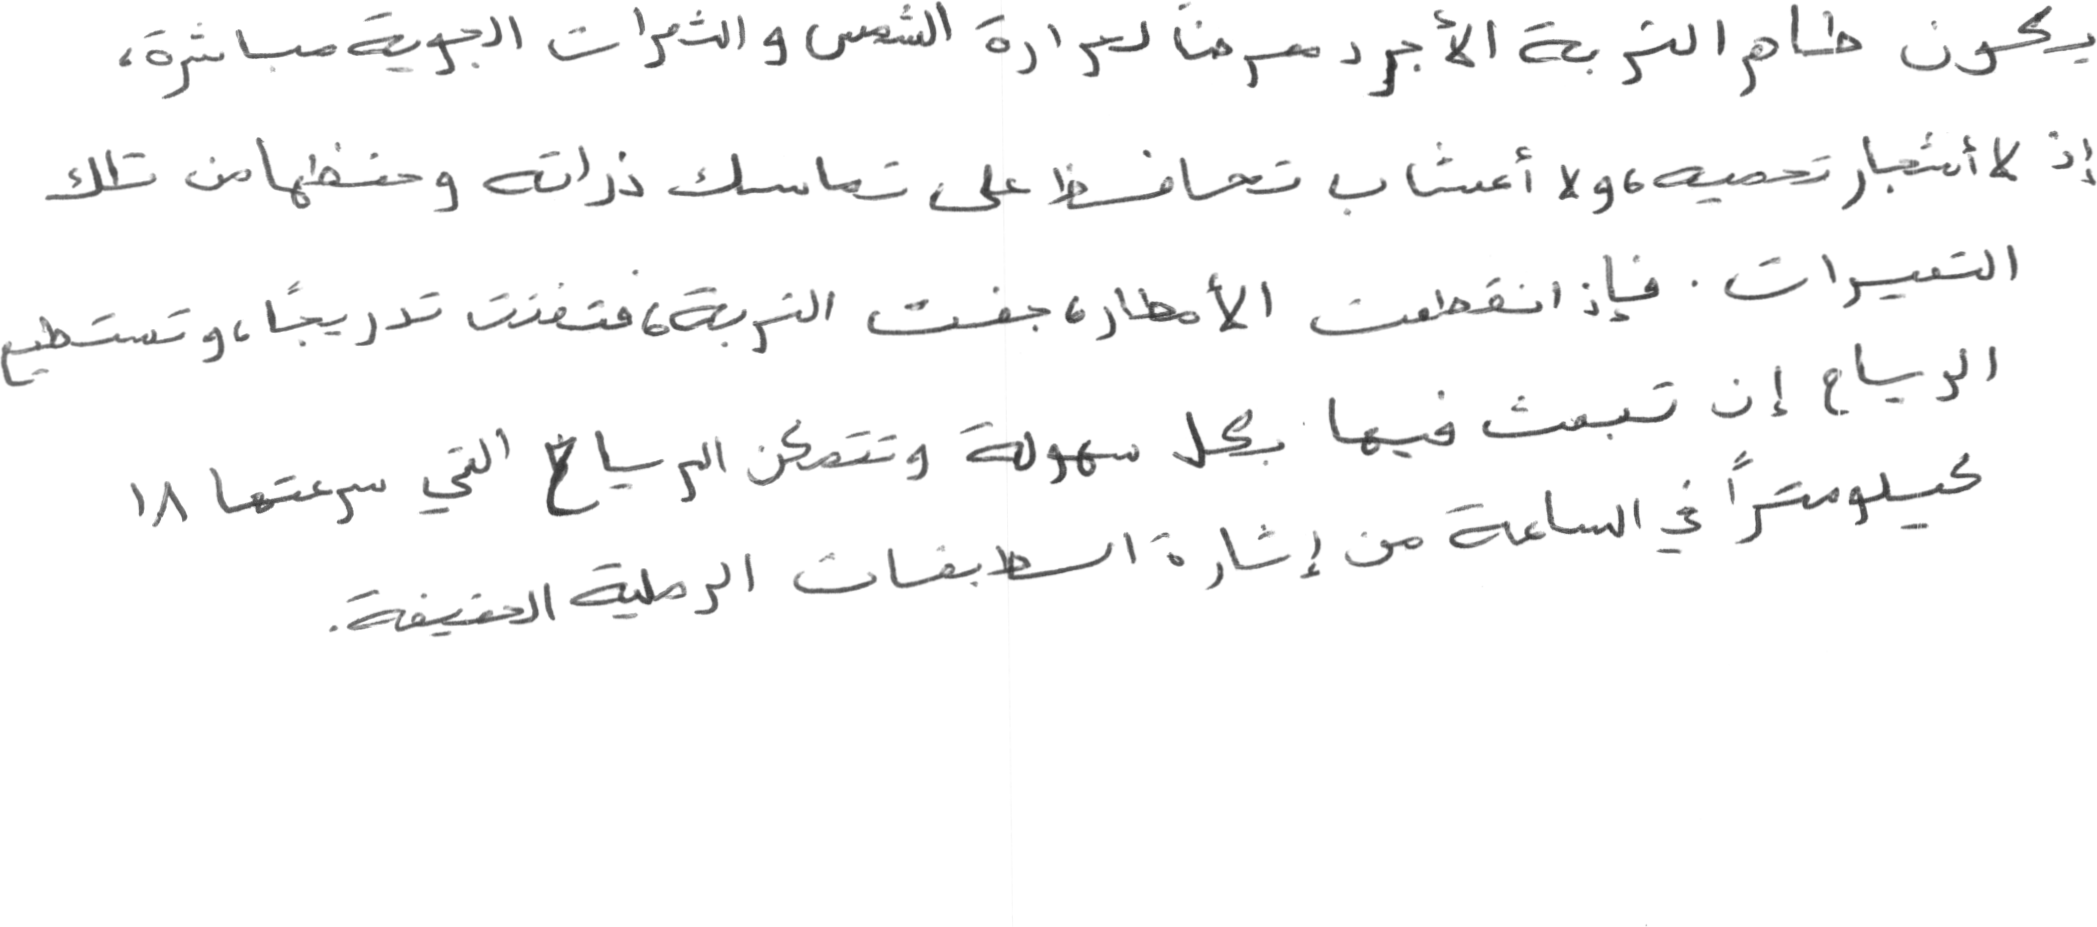 يكون ظاهر التربة الأجرد معرضاً لحرارة الشمس والثمرات الجوية مباشرة،
إذ لا أشجار تحميه، ولا أعشاب تحافظ على تماسك ذراته وحفظها من تلك
التغيرات. فإذا انقطعت الأمطار، جفت التربة، فتفتت تدريجًا، وتستطيع
الرياح إن تبعث فيها بكل سهولة وتتمكن الرياح التي سرعتها ١٨
كيلومتراً في الساعة من إشارة الطبقات الرملية الخفيفة.